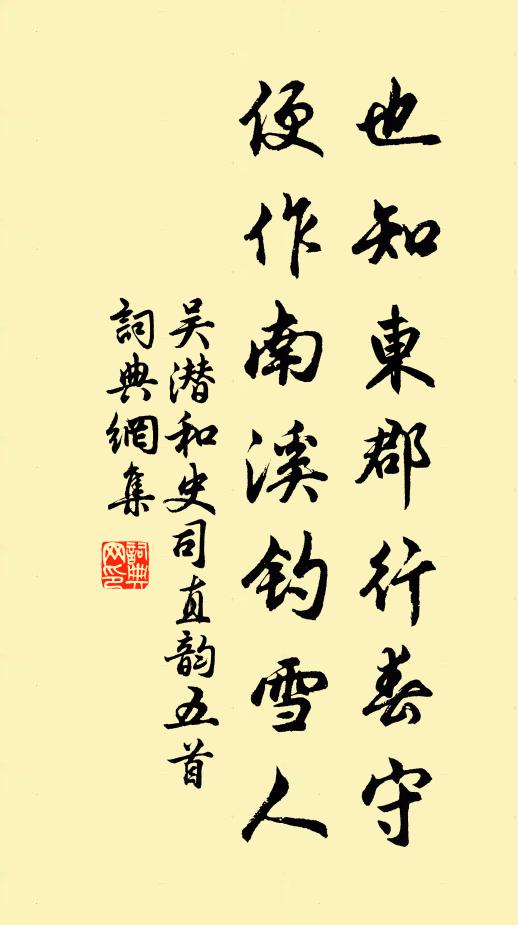 也知東郡行春守
便作南溪釣雪人
吴潜和史司直韵五首
詞典網集
詞典网印